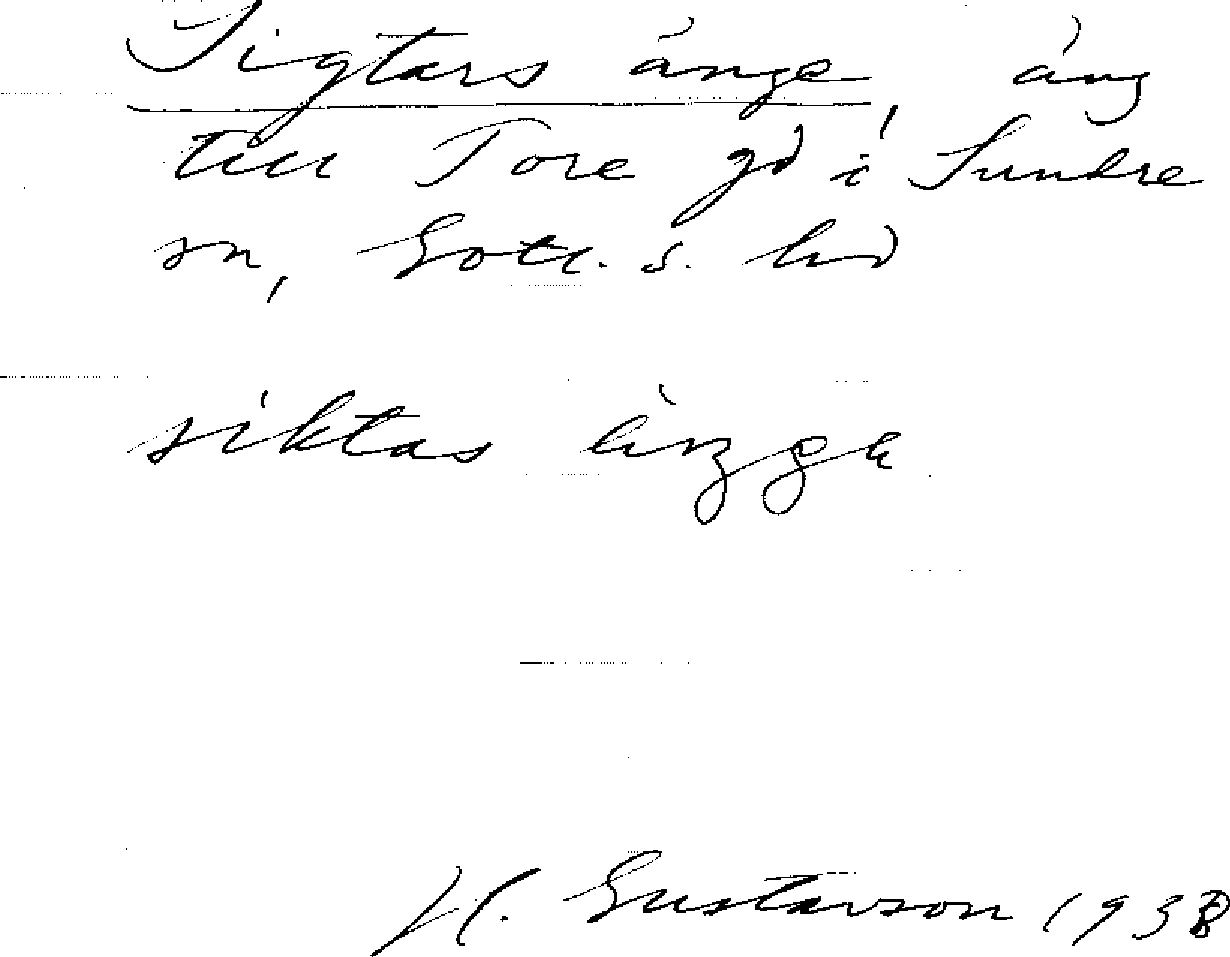 Sigtars änge, äng
till Tore gd i Sundre
sn, Gotl. s. hd
siktas
H. Gustavson 1938